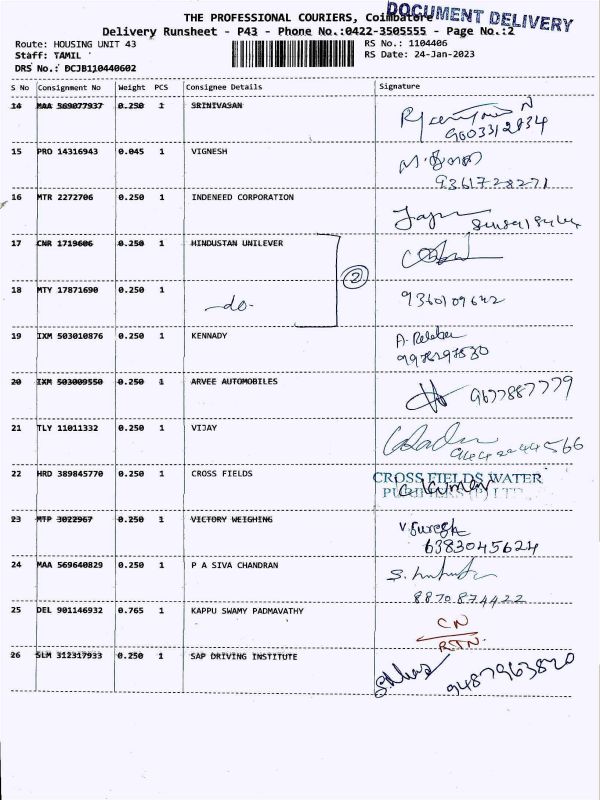 DOCUMENT DELIVERY
THE PROFESSIONAL COURIERS, Coimbatore
Delivery Runsheet - P43 - Phone No.:0422-3505555 - Page No.:2
Route: HOUSING UNIT 43 RS No.: 1104406
Staff: TAMIL RS Date: 24-Jan-2023
DRS No.: DCJB110440602
S No Consignment No Weight PCS Consignee Details Signature
14 MAA 569077937 0.250 1 SRINIVASAN
9003312834
15 PRO 14316943 0.045 1 VIGNESH
9361728271
16 MTR 2272706 0.250 1 INDENEED CORPORATION
17 CNR 1719606 0.250 1 HINDUSTAN UNILEVER
2
18 MTY 17871690 0.250 1 -do- 9360109642
19 IXM 503010876 0.250 1 KENNADY
20 IXM 503009550 0.250 1 ARVEE AUTOMOBILES 9677887779
21 TLY 11011332 0.250 1 VIJAY
22 HRD 389845770 0.250 1 CROSS FIELDS CROSS FIELDS WATER
PURIFIERS (P) LTD
23 MTP 3022967 0.250 1 VICTORY WEIGHING V. Suresh
6383045624
24 MAA 569640829 0.250 1 P A SIVA CHANDRAN
8870874422
25 DEL 901146932 0.765 1 KAPPU SWAMY PADMAVATHY CN
RTN.
26 SLM 312317933 0.250 1 SAP DRIVING INSTITUTE 9487963820